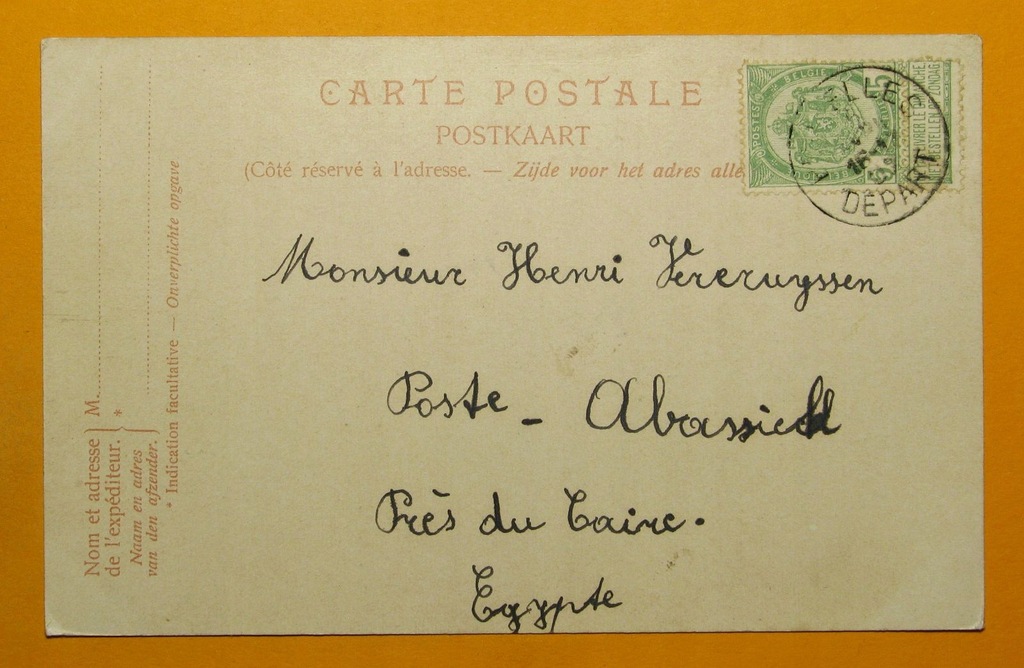 CARTE POSTALE
POSTKAART
(Côté réservé à l'adresse. — Zijde voor het adres alle
POSTES BELGIQUE
5
DÉPART
Monsieur Henri Vercruyssen
Poste - Abassieh
Près du Caire.
Egypte
Nom et adresse de l'expéditeur. } M.
Naam en adres van den afzender. } *
* Indication facultative — Onverplichte opgave